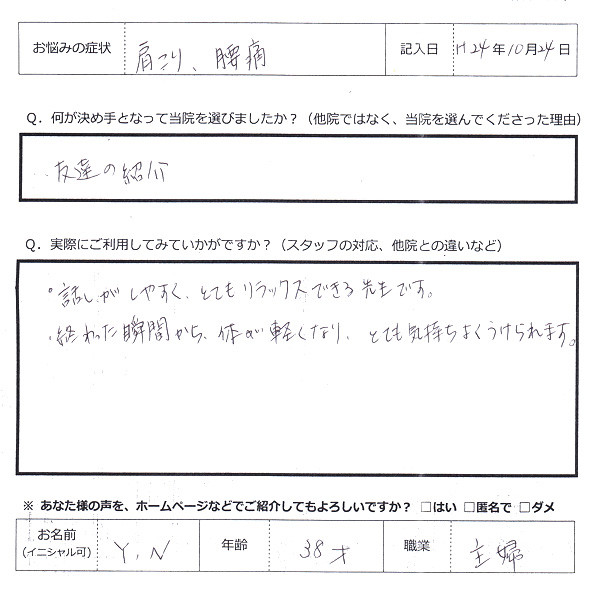 お悩みの症状 肩こり、腰痛 記入日 H24年10月24日
Q．何が決め手となって当院を選びましたか？（他院ではなく、当院を選んでくださった理由）
・友達の紹介
Q．実際にご利用してみていかがですか？（スタッフの対応、他院との違いなど）
・話しがしやすく、とてもリラックスできる先生です。
・終わった瞬間から、体が軽くなり、とても気持ちよくうけられます。
※ あなた様の声を、ホームページなどでご紹介してもよろしいですか？ □はい □匿名で □ダメ
お名前 Y,N 年齢 38才 職業 主婦
(イニシャル可)